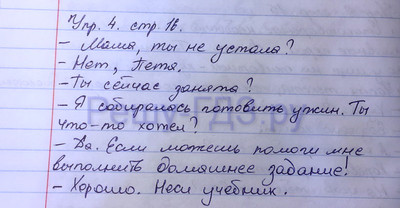 Упр. 4. стр. 16.
- Мама, ты не устала?
- Нет, Петя.
- Ты сейчас занята?
- Я собиралась готовить ужин. Ты
что-то хотел?
- Да. Если можешь помоги мне
выполнить домашнее задание!
- Хорошо. Неси учебник.